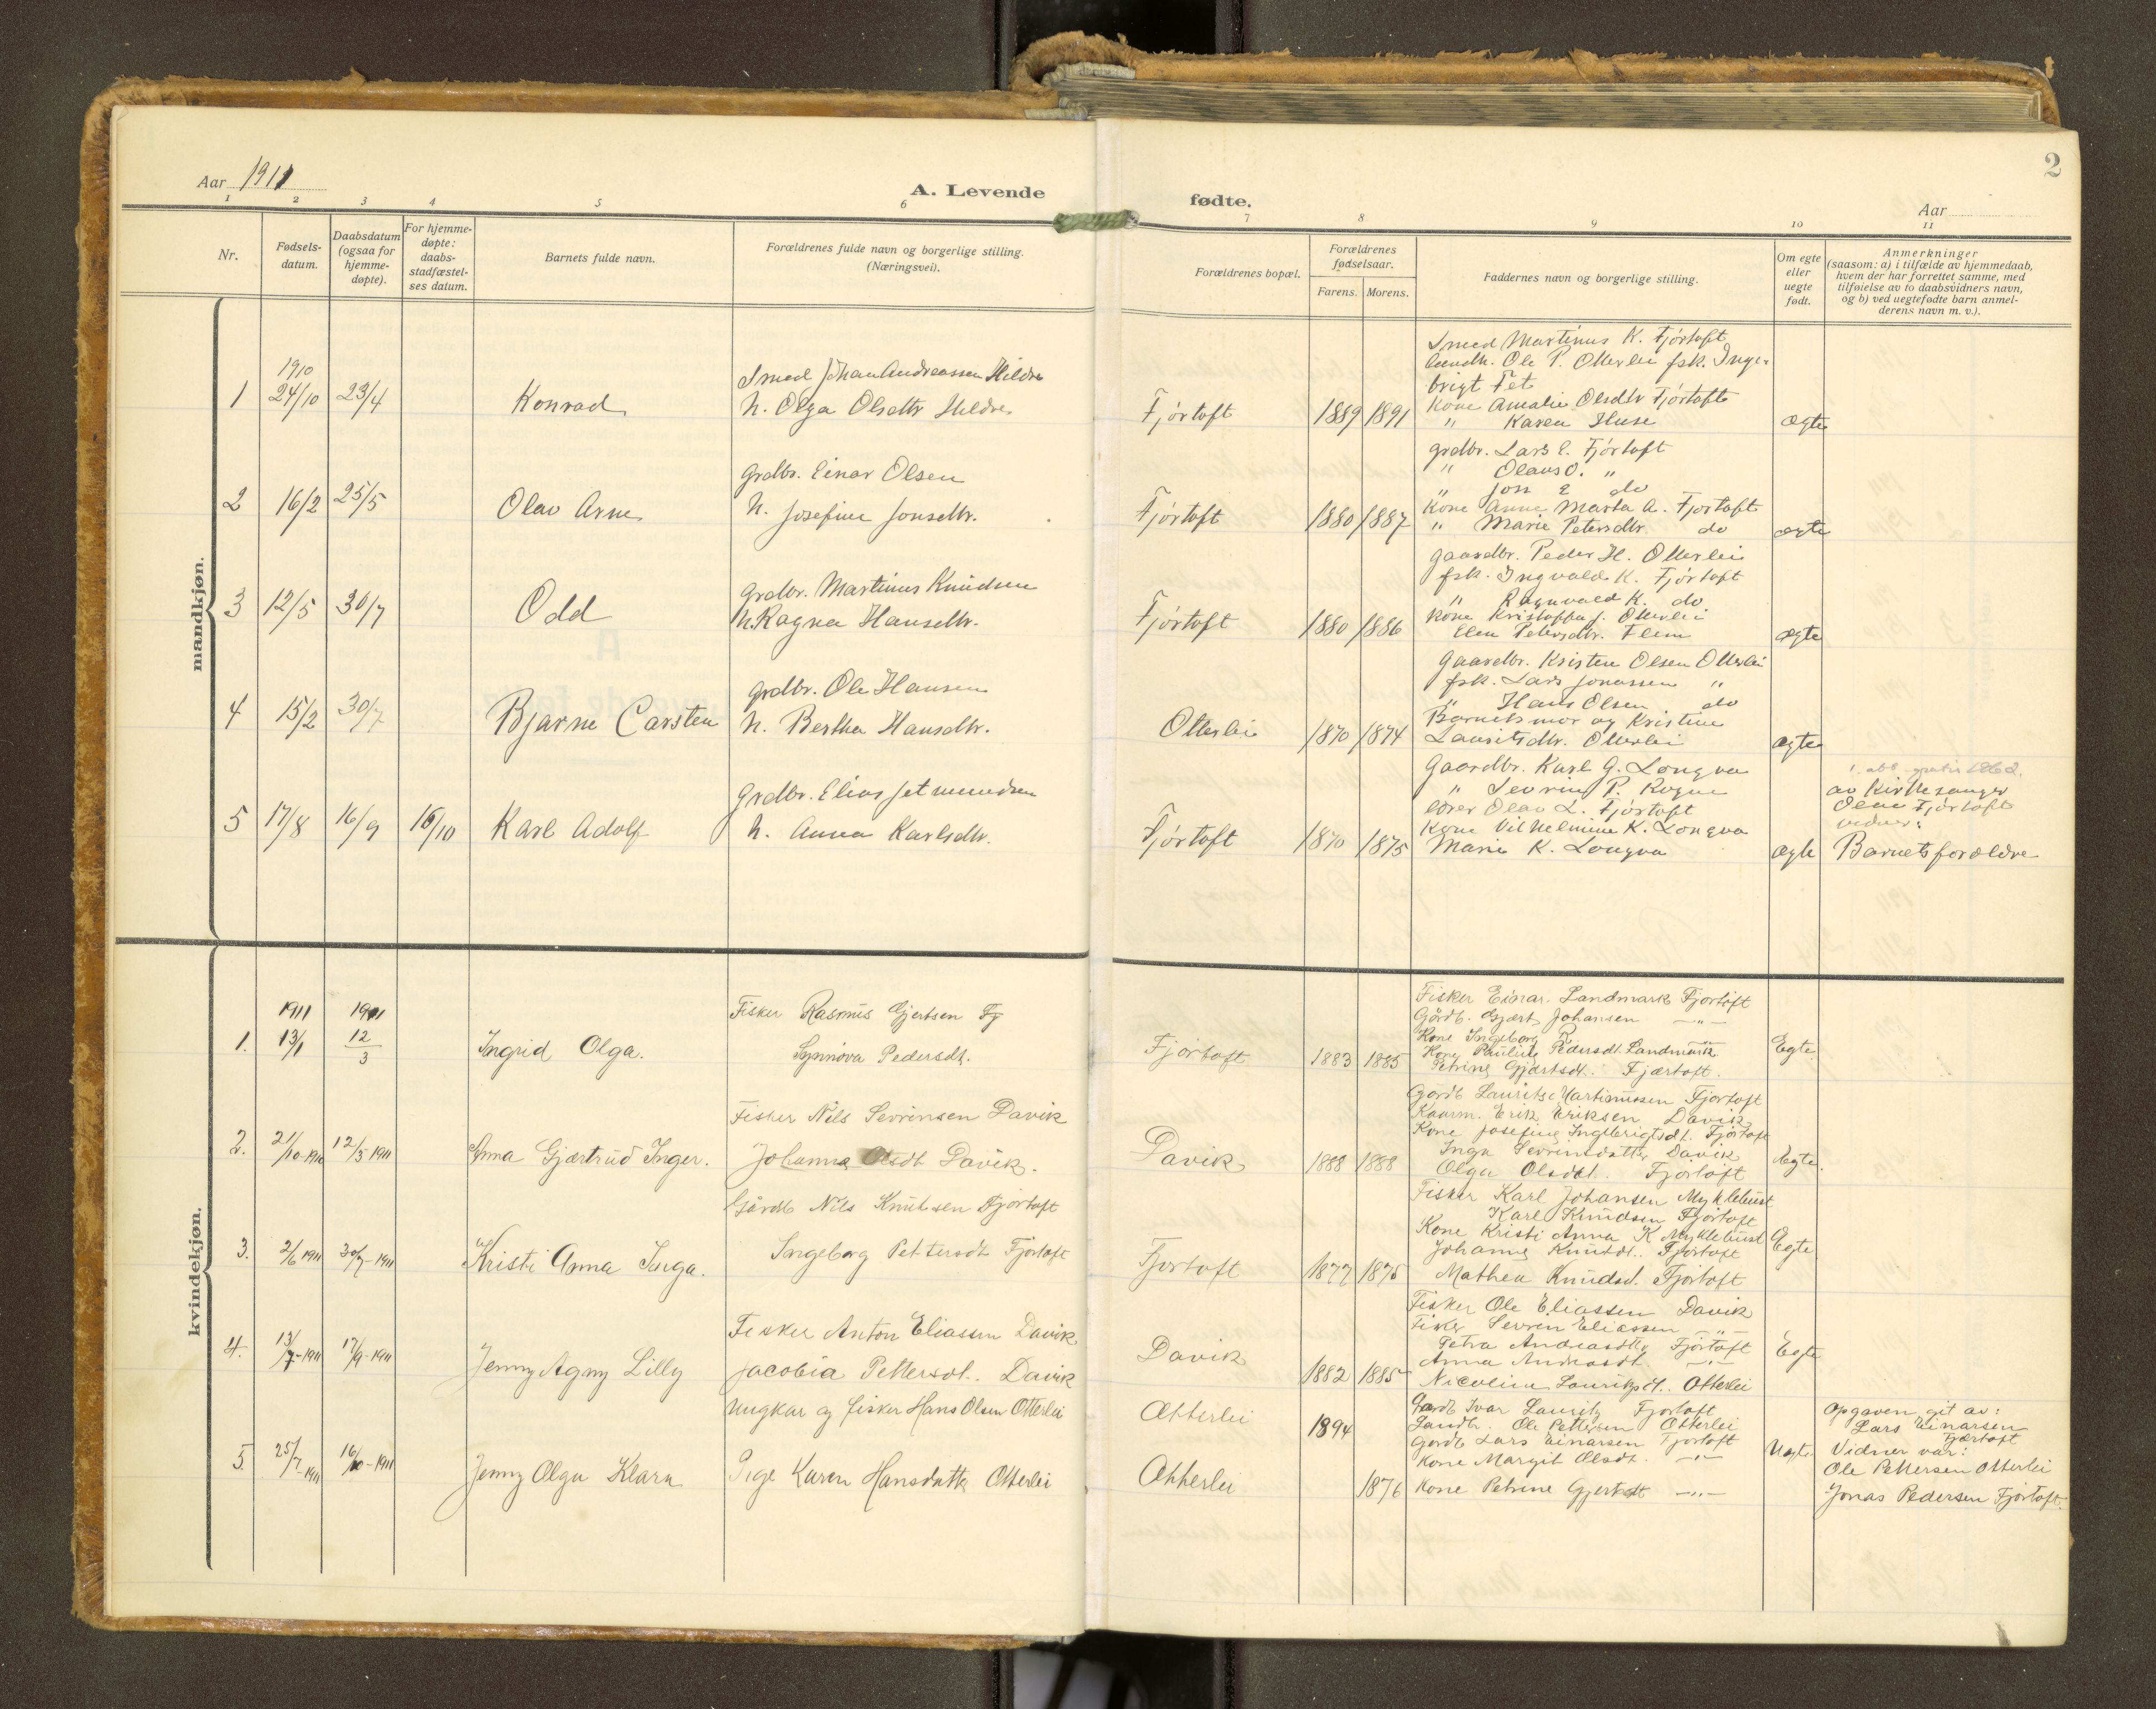 Aar 1911
A. Levende
fødte.
2
Aar
1 2 3 4 5 6 7 8 9 10 11
Nr.
Fødsels-
datum.
Daabsdatum
(ogsaa for
hjemme-
døpte).
For hjemme-
døpte:
daabs-
stadfæstel-
ses datum.
Barnets fulde navn.
Forældrenes fulde navn og borgerlige stilling.
(Næringsvei).
Forældrenes bopæl.
Forældrenes
fødselsaar.
Farens. Morens.
Faddernes navn og borgerlige stilling.
Om egte
eller
uegte
født.
Anmerkninger
(saasom: a) i tilfælde av hjemmedaab,
hvem der har forrettet samme, med
tilføielse av to daabsvidners navn,
og b) ved uegtefødte barn anmel-
derens navn m. v.).
mandkjøn.
1
1910
24/10
23/4
Konrad
Smed Johan Andreassen Hildre
h. Olga Olsdtr Hildre
Fjørtoft
1889 1891
Smed Martinus K. Fjørtoft
Ole P. Otterlei fsk. Inge-
brigt Fet
Kone Amalie Olsdtr Fjørtoft
" Karen Huse
ægte
2
16/2
25/5
Olav Arne
Grdbr. Einar Olsen
h. Josefine Jonsdtr.
Fjørtoft
1880 1887
grdbr. Lars E. Fjørtoft
" Olaus O. "
" Jon E do
Kone Anne Marta A. Fjørtoft
" Marie Petersdtr. do
ægte
3
12/5
30/7
Odd
Grdbr. Martinus Knudsen
h. Ragna Hansdtr.
Fjørtoft
1880 1886
gaardbr. Peder H. Otterlei
fsk. Ingvald K. Fjørtoft
" Ragnvald K. do
Kone Kristoffa J. Otterlei
Elen Petersdtr. Flem
ægte
4
15/2
30/7
Bjarne Carsten
grdbr. Ole Hansen
h. Bertha Hansdtr.
Otterlei
1870 1874
Gaardbr. Kristen Olsen Otterlei
fsk. Lars Jonassen "
" Hans Olsen do
Barnets mor og Kristine
Lauritsdtr. Otterlei
ægte
5
17/8
16/9
15/10
Karl Adolf
Grdbr. Elias Jetmundsen
h. Anna Karlsdtr.
Fjørtoft
1870 1875
Gaardbr. Karl G. Longva
" Sevrin P. Rogne
lærer Olav L. Fjørtoft
Kone Vilhelmine K. Longva
Marie K. Longva
ægte
av Kirkesanger
Olav Fjørtoft
vidner:
Barnets forældre
kvindekjøn.
1.
1911
13/1
1911
12/3
Ingrid Olga.
Fisker Rasmus Gjertsen Fj
Synnøva Pedersdt.
Fjørtoft
1883 1885
Fisker Einar Landmark Fjørtoft
Gårdb. Gjært Johansen —"—
Kone Ingeborg R. —"—
Kone Pauline Pedersdt. Landmark
Petrine Gjærtsdt. Fjærtoft.
Egte
2.
21/10-1910
12/3-1911
Anna Gjærtrud Inger.
Fisker Nils Sevrinsen Davik
Johanna Olsdt Davik.
Davik
1888 1888
Gårdb Laurits Martinussen Fjørtoft
Kaarm. Erik Eriksen Davik
Kone Josefine Ingebrigtsdt. Fjørtoft
Inga Sevrinsdatter Davik
Olga Olsdt. Fjørtoft
Ægte.
3.
2/6 1911
30/7-1911
Kristi Anna Inga.
Gårdb Nils Knutsen Fjørtoft
Ingeborg Pettersdt Fjørtoft
Fjørtoft
1877 1875
Fisker Karl Johansen Myklebust
Karl Knudsen Fjørtoft
Kone Kristi Anna K Myklebust
Johanne Knutsdt. Fjørtoft
Mathea Knudsd. Fjørtoft
Egte
4.
13/7-1911
17/9-1911
Jenny Agny Lilly
Fisker Anton Eliassen Davik
Jacobia Pettersdt. Davik
Davik
1882 1885
Fisker Ole Eliassen Davik
Fisker Sevren Eliassen —"—
Petra Andreasdtr Fjørtoft
Anna Andreasdt. —"—
Nicoline Lauritsdt. Otterlei
Egte
5.
25/7-1911
16/10-1911
Jenny Olga Klara
Ungkar og fisker Hans Olsen Otterlei
Pige Karen Hansdatter Otterlei
Otterlei
Otterlei
1894
1876
Gårdb Ivar Lauritz Fjørtoft
Landb. Ole Pettersen Otterlei
Gårdb Lars Einarsen Fjørtoft
Kone Margit Olsdt. —"—
Kone Petrine Gjertsdt —"—
Uegte
Opgaven git av:
Lars Einarsen
Fjærtoft
Vidner var:
Ole Pettersen Otterlei
Jonas Pedersen Fjørtoft.